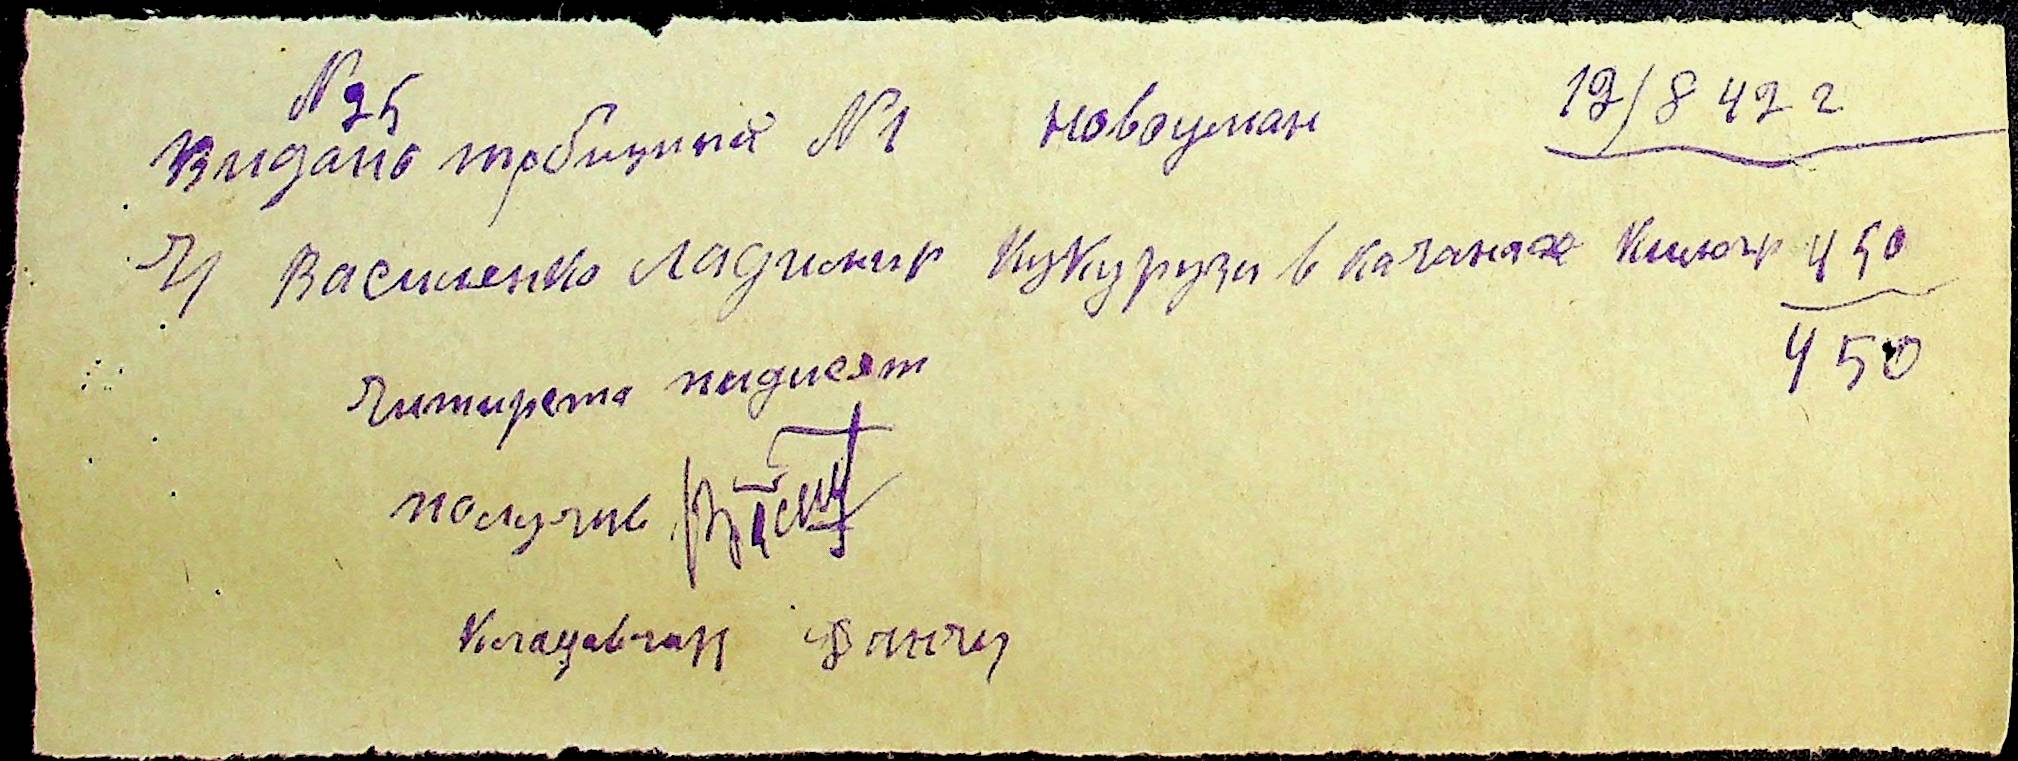 N 25
Видано трбицкий N1 новоуман 12/8 42 г
Ч/ Василенко Ладимир Кукурузи в качанах Килогр 450
450
Читирста пидисят
получив
Кладавчик